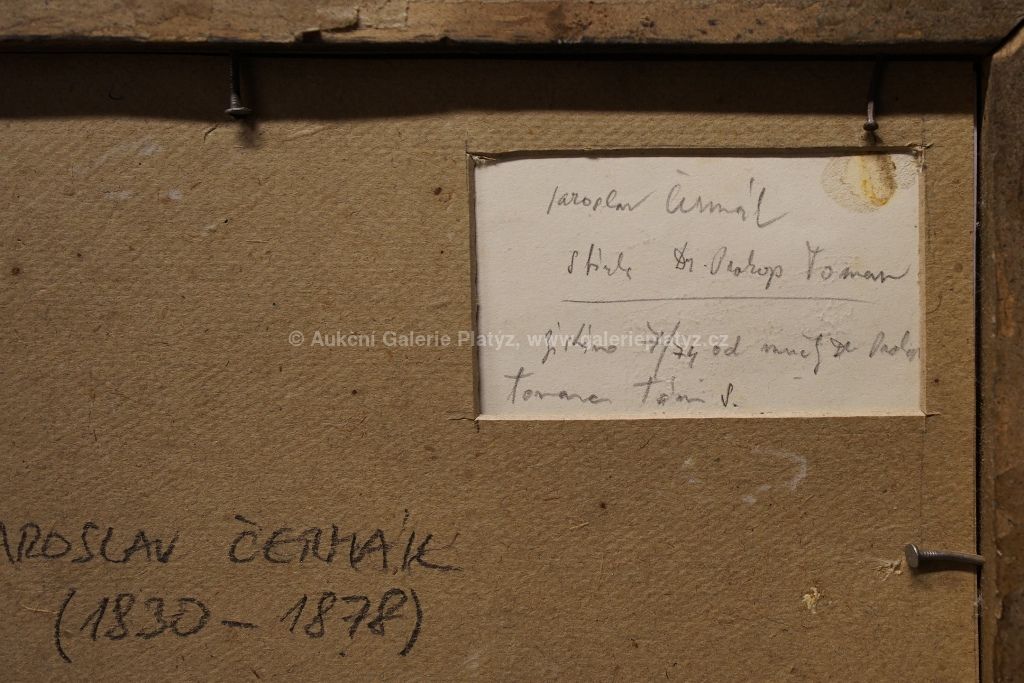 Jaroslav Čermák
sbírka Dr. Prokop Toman
získáno 7/74 od Dr. Prokop
Tomana
© Aukční Galerie Platýz, www.galerieplatyz.cz
AROSLAV ČERMÁK
(1830-1878)